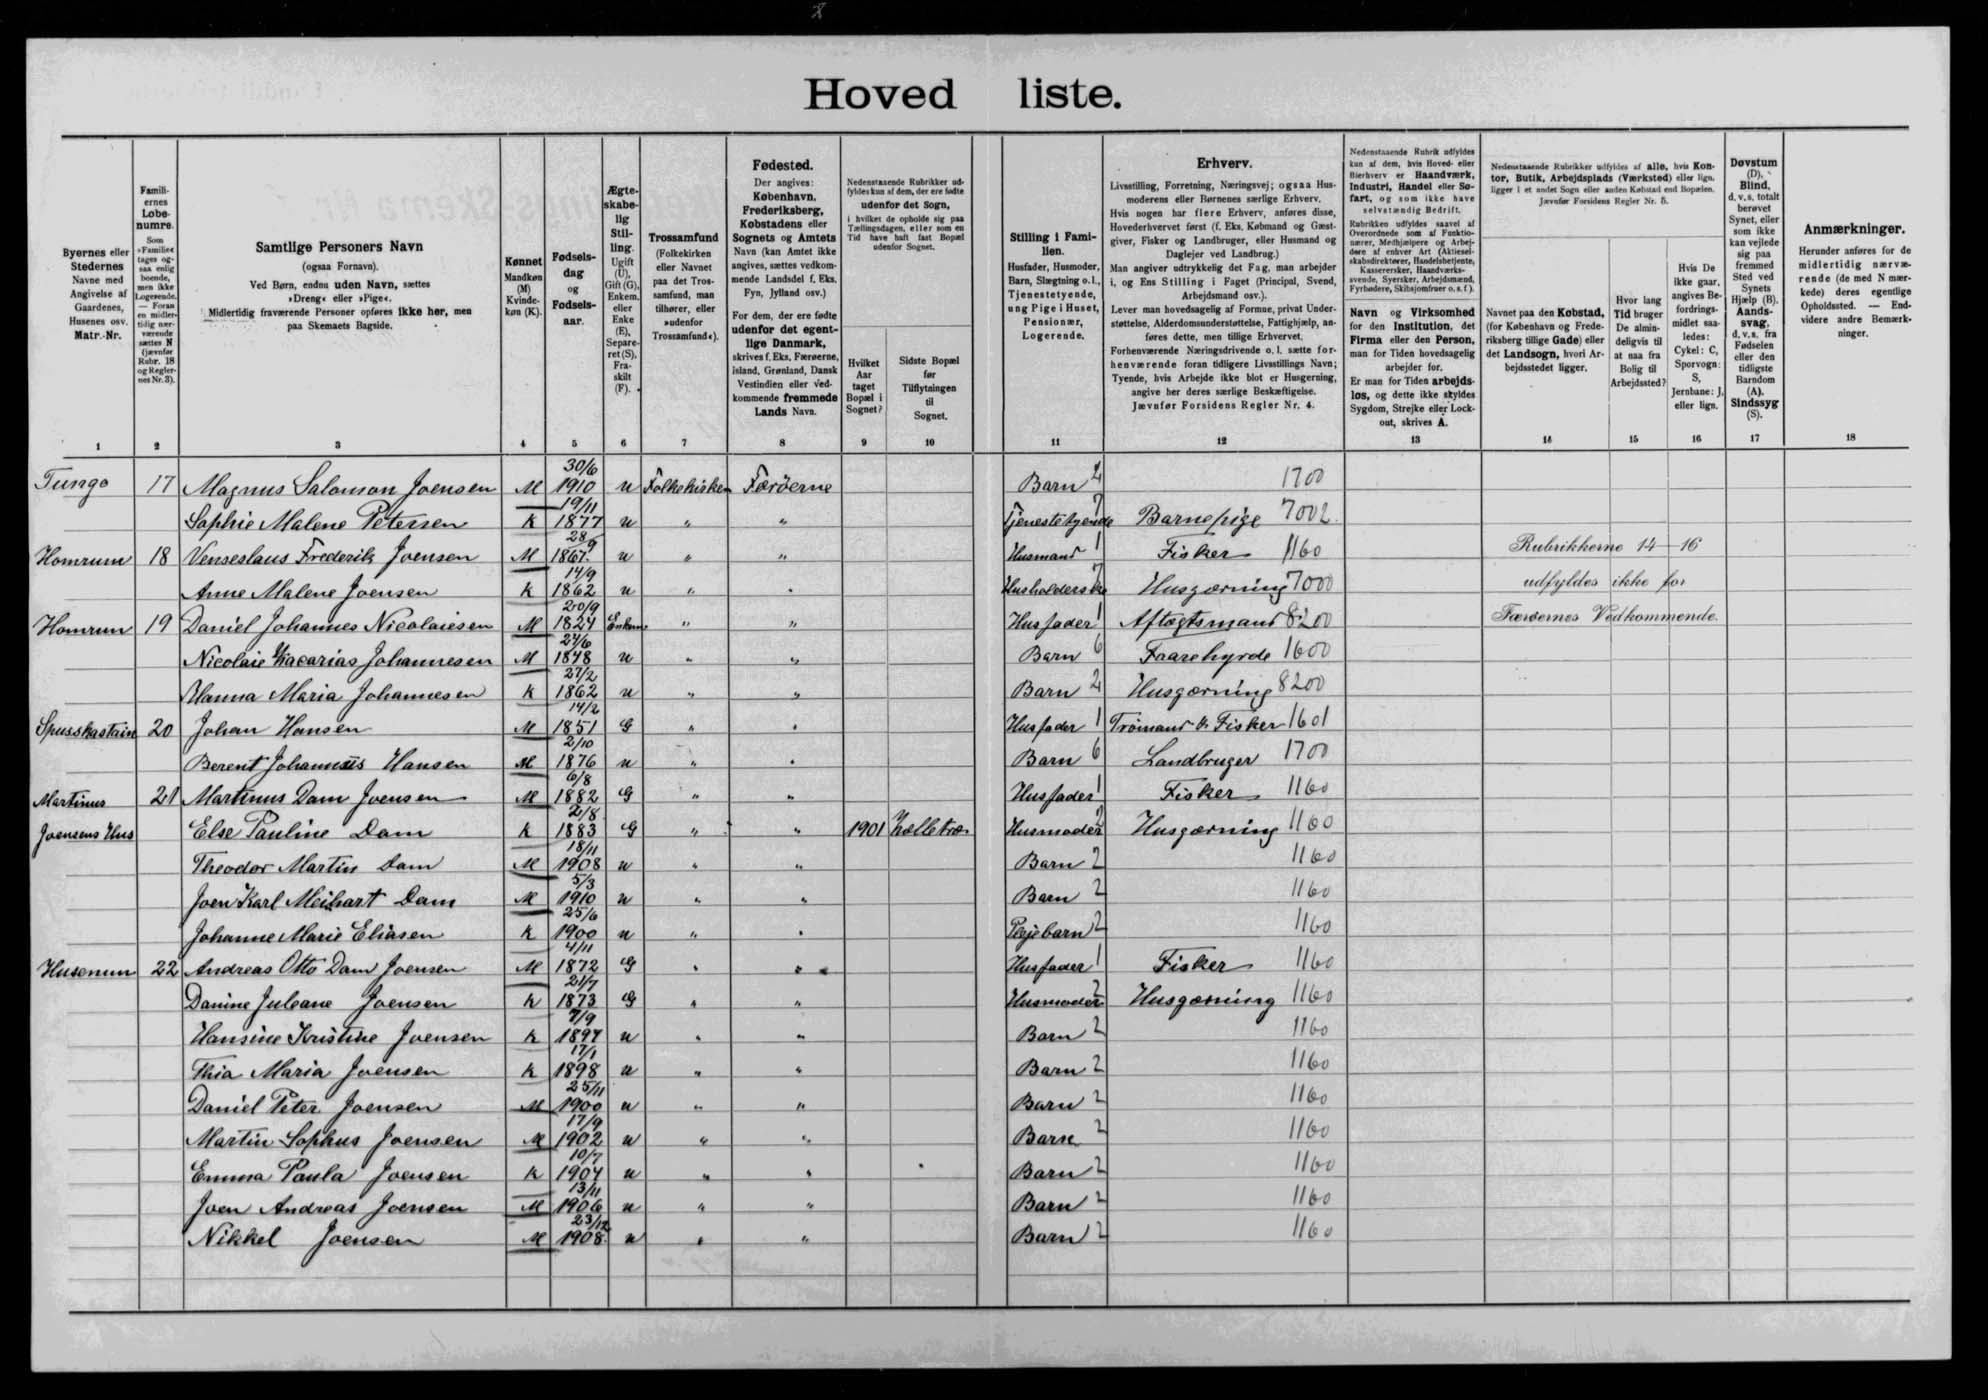 Hoved liste.
Byernes eller Stedernes Navne med Angivelse af Gaardenes, Husenes osv. Matr.-Nr.
Familiernes Løbenumre.
Som »Familie« tages ogsaa enlig boende, men ikke Logerende. — Foran en midlertidig nærværende sættes N (jævnfør Rubr. 18 og Regler nes Nr. 3).
Samtlige Personers Navn
(ogsaa Fornavn).
Ved Børn, endnu uden Navn, sættes
»Dreng« eller »Pige«.
Midlertidig fraværende Personer opføres ikke her, men
paa Skemaets Bagside.
Kønnet
Mandkøn (M) Kvindekøn (K).
Fødselsdag og Fødselsaar.
Ægteskabelig Stilling.
Ugift (U), Gift (G), Enkem. eller Enke (E), Separeret (S), Fraskilt (F).
Trossamfund
(Folkekirken eller Navnet paa det Trossamfund, man tilhører, eller »udenfor Trossamfund«).
Fødested.
Der angives: København, Frederiksberg, Købstadens eller Sognets og Amtets Navn (kan Amtet ikke angives, sættes vedkommende Landsdel f. Eks. Fyn, Jylland osv.)
For dem, der ere fødte udenfor det egentlige Danmark, skrives f. Eks. Færøerne, Island, Grønland, Dansk Vestindien eller vedkommende fremmede Lands Navn.
Nedenstaaende Rubrikker udfyldes kun af dem, der ere fødte udenfor det Sogn, i hvilket de opholde sig paa Tællingsdagen, eller som en Tid have haft fast Bopæl udenfor Sognet.
Hvilket Aar taget Bopæl i Sognet?
Sidste Bopæl før Tilflytningen til Sognet.
Stilling i Familien.
Husfader, Husmoder, Barn, Slægtning o. l., Tjenestetyende, ung Pige i Huset, Pensionær, Logerende.
Erhverv.
Livsstilling, Forretning, Næringsvej; ogsaa Husmoderens eller Børnenes særlige Erhverv.
Hvis nogen har flere Erhverv, anføres disse, Hovederhvervet først (f. Eks. Købmand og Gæstgiver, Fisker og Landbruger, eller Husmand og Daglejer ved Landbrug.)
Man angiver udtrykkelig det Fag, man arbejder i, og Ens Stilling i Faget (Principal, Svend, Arbejdsmand osv.).
Lever man hovedsagelig af Formue, privat Understøttelse, Alderdomsunderstøttelse, Fattighjælp, anføres dette, men tillige Erhvervet.
Forhenværende Næringsdrivende o. l. sætte forhenværende foran tidligere Livsstillings Navn; Tyende, hvis Arbejde ikke blot er Husgerning, angive her deres særlige Beskæftigelse.
Jævnfør Forsidens Regler Nr. 4.
Nedenstaaende Rubrik udfyldes kun af dem, hvis Hoved- eller Bierhverv er Haandværk, Industri, Handel eller Søfart, og som ikke have selvstændig Bedrift.
Rubrikken udfyldes saavel af Overordnede som af Funktionærer, Medhjælpere og Arbejdere af enhver Art (Aktieselskabsdirektører, Handelsbetjente, Kassererksker, Haandværkssvende, Syersker, Arbejdsmænd, Fyrbødere, Skibsjomfruer o. s. f.).
Navn og Virksomhed for den Institution, det Firma eller den Person, man for Tiden hovedsagelig arbejder for.
Er man for Tiden arbejdsløs, og dette ikke skyldes Sygdom, Strejke eller Lockout, skrives A.
Nedenstaaende Rubrikker udfyldes af alle, hvis Kontor, Butik, Arbejdsplads (Værksted) eller lign. ligger i et andet Sogn eller anden Købstad end Bopælen.
Jævnfør Forsidens Regler Nr. 5.
Navnet paa den Købstad, (for København og Frederiksberg tillige Gade) eller det Landsogn, hvori Arbejdsstedet ligger.
Hvor lang Tid bruger De almindeligvis til at naa fra Bolig til Arbejdssted?
Hvis De ikke gaar, angives Befordringsmidlet saaledes: Cykel: C, Sporvogn: S, Jernbane: J, eller lign.
Døvstum (D), Blind, d. v. s. totalt berøvet Synet, eller som ikke kan vejlede sig paa fremmed Sted ved Synets Hjælp (B). Aandssvag, d. v. s. fra Fødselen eller den tidligste Barndom (A). Sindssyg (S).
Anmærkninger.
Herunder anføres for de midlertidig nærværende (de med N mærkede) deres egentlige Opholdssted. — Endvidere andre Bemærkninger.
1 2 3 4 5 6 7 8 9 10 11 12 13 14 15 16 17 18
Tungo 17 Magnus Salomon Joensen M 30/6 1910 u Folkekirken Færöerne Barn 2 1700
Sophie Malene Petersen K 19/11 1877 u " " Tjenestetyende 7 Barnepige 7002
Homrum 18 Venseslaus Frederik Joensen M 28/9 1867 u " " Husmand 1 Fisker 1160 Rubrikkerne 14-16
Anne Malene Joensen K 14/9 1862 u " " Husholderske 7 Husgærning 7000 udfyldes ikke for
Homrum 19 Daniel Johannes Nicolaiesen M 20/9 1824 Enkem " " Husfader 1 Aftægtsmand 8200 Færøernes Vedkommende.
Nicolaie Zacarias Johannesen M 24/6 1848 u " " Barn 6 Faarehyrde 1600
Hanna Maria Johannesen K 27/2 1862 u " " Barn 2 Husgærning 8200
Spusskastain 20 Johan Hansen M 14/2 1851 G " " Husfader 1 Trömand & Fisker 1601
Berent Johannes Hansen M 2/10 1876 u " " Barn 6 Landbruger 1700
Martinus 21 Martinus Dam Joensen M 6/8 1882 G " " Husfader 1 Fisker 1160
Joensens Hus Else Pauline Dam K 2/8 1883 G " " 1901 Husmoder 2 Husgærning 1160
Theodor Martin Dam M 18/11 1908 u " " Barn 2 1160
Joen Karl Meihart Dam M 5/3 1910 u " " Barn 2 1160
Johanne Marie Eliasen K 25/6 1900 u " " Plejebarn 2 1160
Husenum 22 Andreas Otto Dam Joensen M 4/11 1872 G " " Husfader 1 Fisker 1160
Danine Juleane Joensen K 21/7 1873 G " " Husmoder 2 Husgærning 1160
Hansine Kristine Joensen K 7/9 1897 u " " Barn 2 1160
Thia Maria Joensen K 17/1 1898 u " " Barn 2 1160
Daniel Peter Joensen M 25/11 1900 u " " Barn 2 1160
Martin Sophus Joensen M 17/9 1902 u " " Barn 2 1160
Emma Paula Joensen K 10/7 1904 u " " Barn 2 1160
Joen Andreas Joensen M 13/11 1906 u " " Barn 2 1160
Nikkel Joensen M 23/12 1908 u " " Barn 2 1160